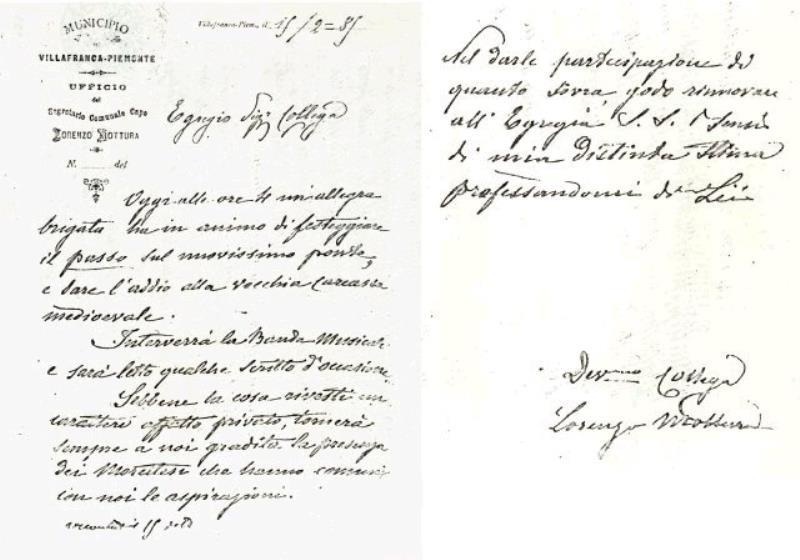 MUNICIPIO
DI
VILLAFRANCA-PIEMONTE
UFFICIO
del
Segretario Comunale Capo
LORENZO MOTTURA
N. del
Villafranca-Piem., il 15/2=85
Egregio Sig. Collega
Oggi alle ore 4 un'allegra
brigata ha in animo di festeggiare
il passo sul nuovissimo ponte,
e dare l'addio alla vecchia carcassa
medioevale.
Interverrà la Banda Musicale
e sarà letto qualche scritto d'occasione.
Sebbene la cosa rivesti un
carattere affatto privato, tornerà
sempre a noi gradita la presenza
dei Morettesi che hanno comuni
con noi le aspirazioni.
Nel darle partecipazione di
quanto sovra, godo rinnovare
all'Egregia S. S. i sensi
di mia distinta stima
professandomi di Lei
Dev.mo Collega
Lorenzo Mottura